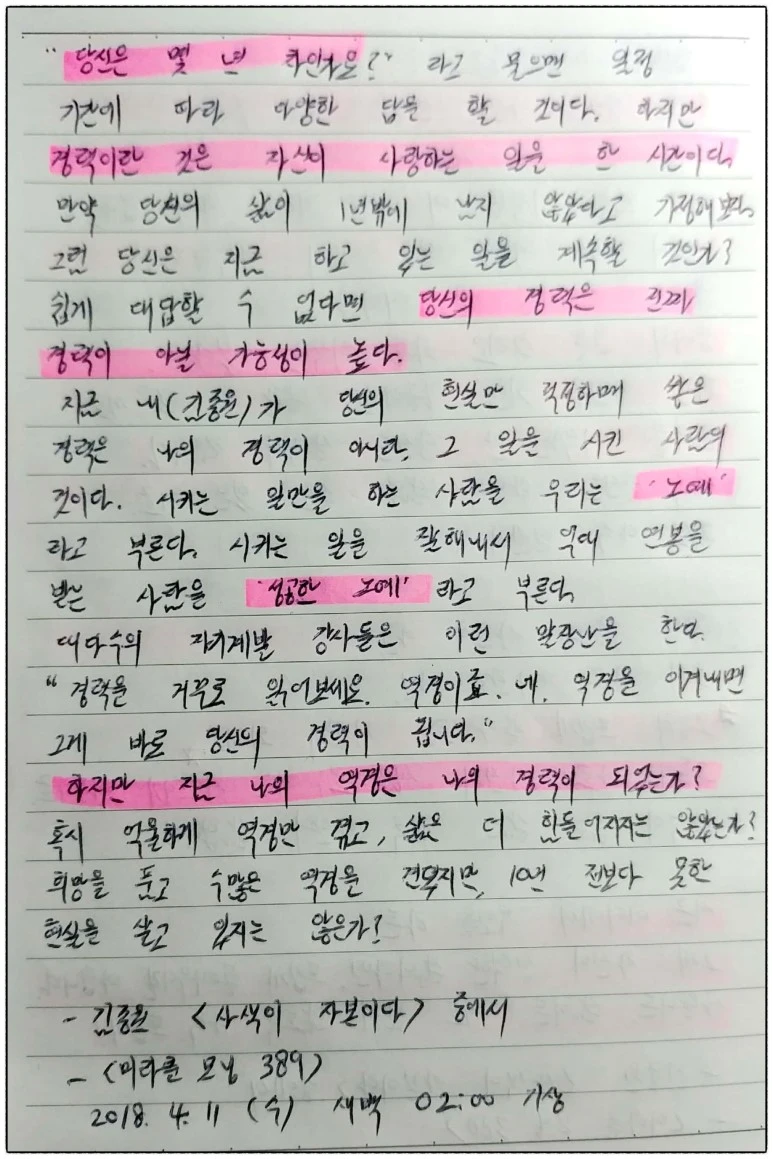 “당신은 몇 년 차인가요?” 라고 물으면 일정
기간에 따라 다양한 답을 할 것이다. 하지만
경력이란 것은 자신이 사랑하는 일을 한 시간이다.
만약 당신의 삶이 1년밖에 남지 않았다고 가정해보자.
그럼 당신은 지금 하고 있는 일을 계속할 것인가?
쉽게 대답할 수 없다면 당신의 경력은 진짜
경력이 아닐 가능성이 높다.
지금 내(김종원)가 당신의 현실만 걱정하며 쌓은
경력은 나의 경력이 아니다. 그 일을 시킨 사람의
것이다. 시키는 일만을 하는 사람을 우리는 '노예'
라고 부른다. 시키는 일을 잘해내서 억대 연봉을
받는 사람을 '성공한 노예' 라고 부른다.
대다수의 자기계발 강사들은 이런 말장난을 한다.
“경력을 거꾸로 읽어보세요. 역경이죠. 네. 역경을 이겨내면
그게 바로 당신의 경력이 됩니다.”
하지만 지금 나의 역경은 나의 경력이 되었는가?
혹시 억울하게 역경만 겪고, 삶은 더 힘들어지지는 않았는가?
희망을 품고 수많은 역경을 견뎠지만, 10년 전보다 못한
현실을 살고 있지는 않은가?
- 김종원 <사색이 자본이다> 중에서
- <미라클 모닝 389>
2018. 4. 11 (수) 새벽 02:00 기상